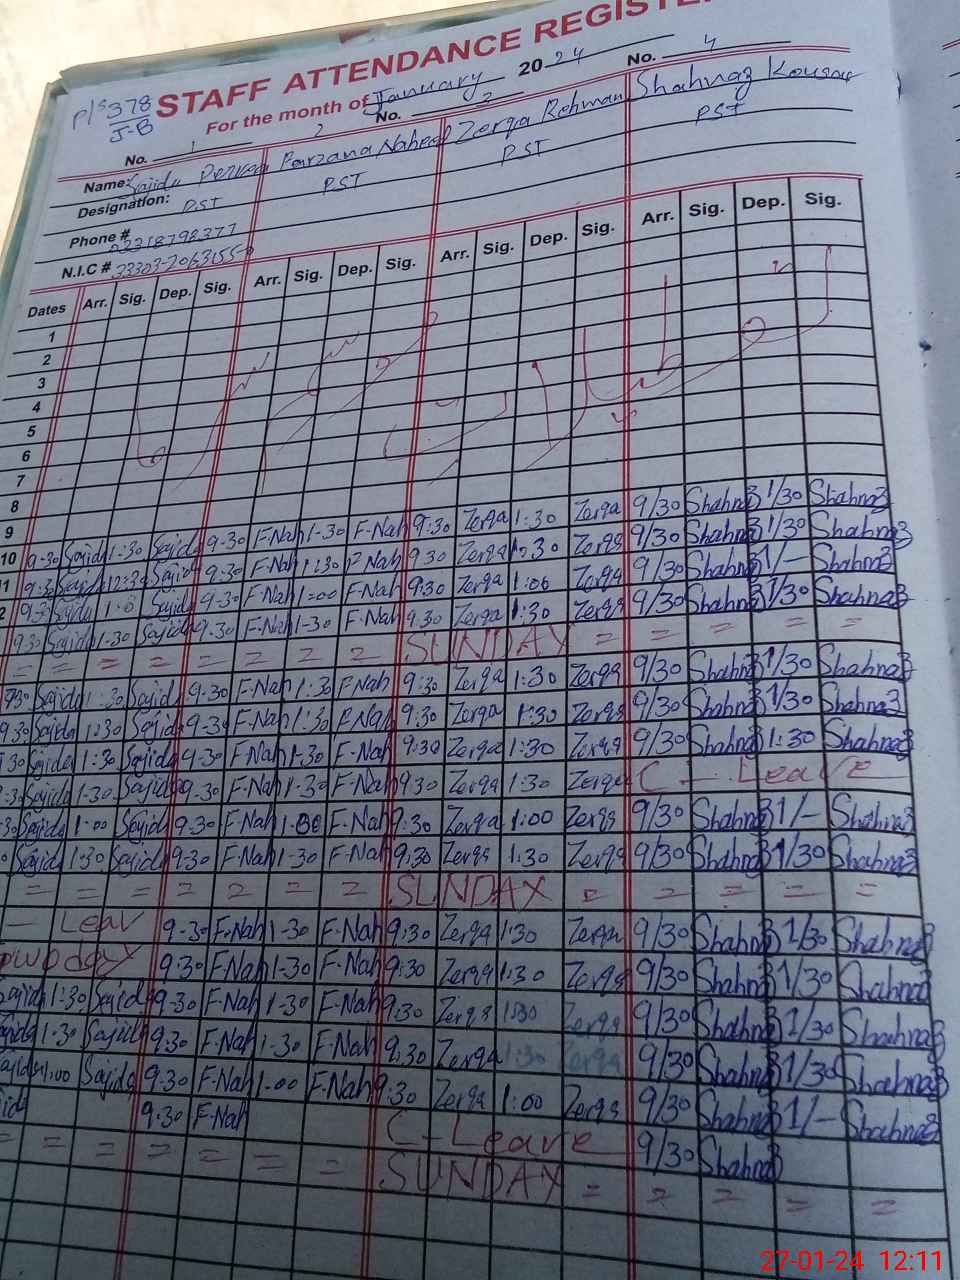 P/S 378
J-B
STAFF ATTENDANCE REGISTE
For the month of January 2024
No. 1 2 No. 3 No. 4
Name: Sajida Perveen Farzana Naheed Zerqa Rehman Shahnaz Kousar
Designation: PST PST PST PST
Phone # 03318798377
N.I.C # 33303-2063155-0
Dates Arr. Sig. Dep. Sig. Arr. Sig. Dep. Sig. Arr. Sig. Dep. Sig. Arr. Sig. Dep. Sig.
1
2
3
4
5
6
7
8
9
10 9-30 Sajida 1:30 Sajida 9-30 F-Nah 1-30 F-Nah 9:30 Zerqa 1:30 Zerqa 9/30 Shahnaz 1/30 Shahnaz
11 9:3 Sajida 12:30 Sajida 9:30 F-Nah 1:30 F-Nah 9:30 Zerqa 1:30 Zerqa 9/30 Shahnaz 1/30 Shahnaz
2 9:3 Sajida 1:0 Sajida 9-30 F-Nah 1:00 F-Nah 9:30 Zerqa 1:00 Zerqa 9/30 Shahnaz 1/- Shahnaz
9:30 Sajida 1-30 Sajida 9-30 F-Nah 1-30 F-Nah 9:30 Zerqa 1:30 Zerqa 9/30 Shahnaz 1/30 Shahnaz
= = = = = = = = SUNDAY = = = = =
9:30 Sajida 1:30 Sajida 9-30 F-Nah 1:30 F-Nah 9:30 Zerqa 1:30 Zerqa 9/30 Shahnaz 1/30 Shahnaz
9:30 Sajida 1:30 Sajida 9-30 F-Nah 1:30 F-Nah 9:30 Zerqa 1:30 Zerqa 9/30 Shahnaz 1/30 Shahnaz
30 Sajida 1:30 Sajida 9-30 F-Nah 1-30 F-Nah 9:30 Zerqa 1:30 Zerqa 9/30 Shahnaz 1:30 Shahnaz
:30 Sajida 1:30 Sajida 9-30 F-Nah 1-30 F-Nah 9:30 Zerqa 1:30 Zerqa C - Leave
30 Sajida 1-00 Sajida 9:30 F-Nah 1-00 F-Nah 9:30 Zerqa 1:00 Zerqa 9/30 Shahnaz 1/- Shahnaz
Sajida 1:30 Sajida 9-30 F-Nah 1-30 F-Nah 9:30 Zerqa 1:30 Zerqa 9/30 Shahnaz 1/30 Shahnaz
= = = = = = = SUNDAY = = = = =
— Leav 9-30 F-Nah 1-30 F-Nah 9:30 Zerqa 1:30 Zerqa 9/30 Shahnaz 1/30 Shahnaz
9:30 F-Nah 1-30 F-Nah 9:30 Zerqa 1:30 Zerqa 9/30 Shahnaz 1/30 Shahnaz
Sajida 1:30 Sajida 9-30 F-Nah 1-30 F-Nah 9:30 Zerqa 1:30 Zerqa 9/30 Shahnaz 1/30 Shahnaz
Sajida 1-30 Sajida 9:30 F-Nah 1-30 F-Nah 9:30 Zerqa 1:30 Zerqa 9/30 Shahnaz 1/30 Shahnaz
Sajida 1:00 Sajida 9:30 F-Nah 1-00 F-Nah 9:30 Zerqa 1:00 Zerqa 9/30 Shahnaz 1/- Shahnaz
9:30 F-Nah C-Leave 9/30 Shahnaz
= = = = = = = SUNDAY = = = = =
27-01-24 12:11